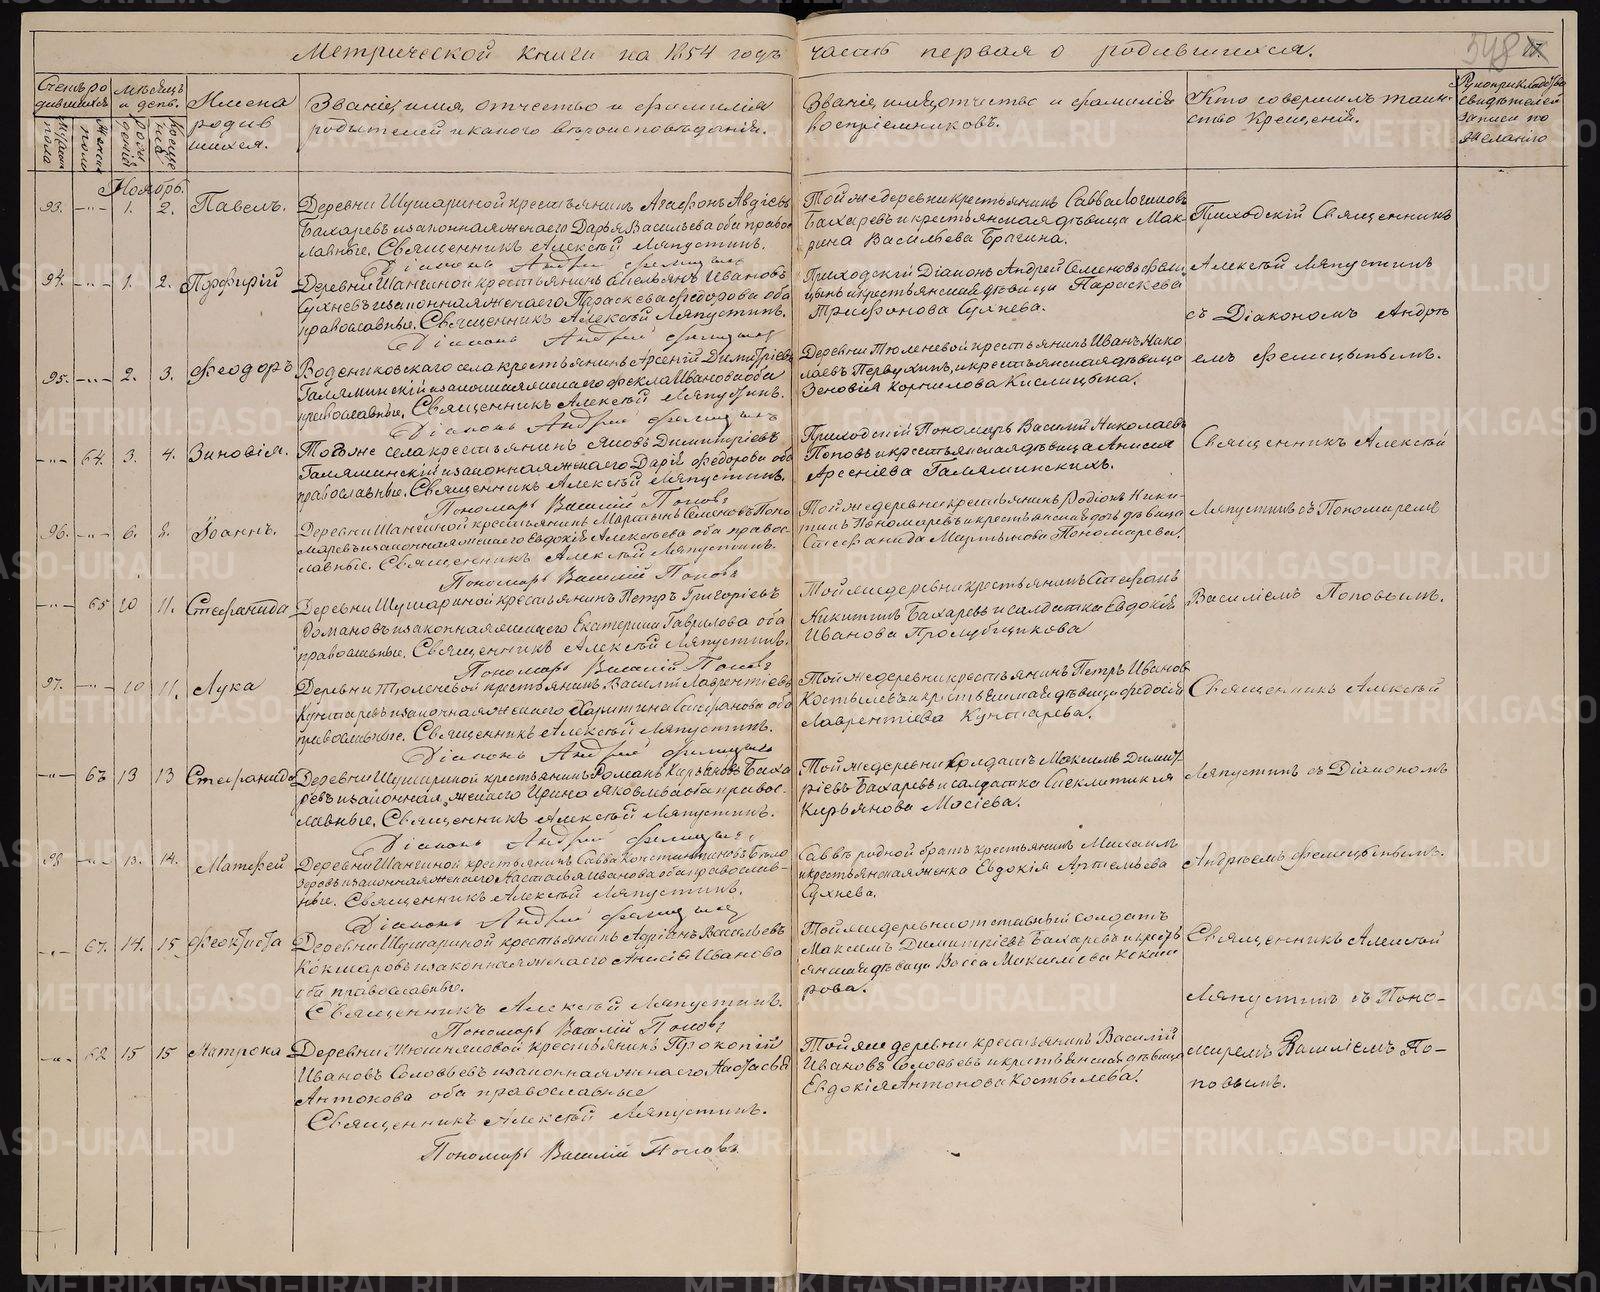 Метрической книги на 1854 годъ часть первая о родившихся.
548
Счетъ ро
дившихся
Мужеска
пола
Женска
пола
Мѣсяцъ
и день.
рожденія
крещенія
Имена
родив
шихся.
Званіе, имя, отчество и фамилія
родителей и какого вѣроисповѣданія.
Званіе, имя, отчество и фамилія
воспріемниковъ.
Кто совершилъ таин-
ство крещенія.
Рукоприкладство
свидѣтелей
записи по
желанію
Ноябрь.
93. -"- 1. 2. Павелъ.
Деревни Шушариной крестьянинъ Агафонъ Авдіевъ
Бахаревъ и законная жена его Дарья Васильева оба право
славные. Священникъ Алексѣй Ляпустинъ.
Діаконъ Андрей
Той же деревни крестьянинъ Савва Логиновъ
Бахаревъ и крестьянская дѣвица Мак-
рина Васильева Брагина.
Приходскій Священникъ
94. -"- 1. 2. Порфирій
Деревни Шангиной крестьянинъ Емельянъ Ивановъ
Сухневъ и законная жена его Параскева Феодорова оба
православные. Священникъ Алексѣй Ляпустинъ.
Діаконъ Андрей
Приходскій Діаконъ Андрей Семеновъ
и крестьянская дѣвица Параскева
Трифонова Сухнева.
Алексѣй Ляпустинъ
съ Діакономъ Андре
95. -"- 2. 3. Феодоръ
Водениковскаго села крестьянинъ Арсеній Димитріевъ
Галяминскій и законная жена его Фекла Иванова оба
православные. Священникъ Алексѣй Ляпустинъ.
Діаконъ Андрей
Деревни Тюленевой крестьянинъ Иванъ Нико
лаевъ Первухинъ, и крестьянская дѣвица
Зеновія Корнилова Кислицына.
емъ
-"- 64. 3. 4. Зиновія.
Того же села крестьянинъ Яковъ Димитріевъ
Галяминскій и законная жена его Дарія Феодорова оба
православные. Священникъ Алексѣй Ляпустинъ.
Пономарь Василій Поповъ
Приходскій Пономарь Василій Николаевъ
Поповъ и крестьянская дѣвица Анисія
Арсеніева Галяминскихъ.
Священникъ Алексѣй
96. -"- 6. Іоаннъ.
Деревни Шангиной крестьянинъ Мартынъ Семеновъ Поно
маревъ и законная жена его Евдокія Алексѣева оба правос
лавные. Священникъ Алексѣй Ляпустинъ.
Пономарь Василій Поповъ
Той же деревни крестьянинъ Родіонъ Ники-
тинъ Пономаревъ и крестьянская дочь дѣвица
Стефанида Мартынова Пономарева.
Ляпустинъ съ Пономаремъ
-"- 65 10 11. Стефанида
Деревни Шушариной крестьянинъ Петръ Григорьевъ
Домановъ и законная жена его Екатерина Гаврилова оба
православные. Священникъ Алексѣй Ляпустинъ.
Пономарь Василій Поповъ
Той же деревни крестьянинъ Стефанъ
Никитинъ Бахаревъ и солдатка Евдокія
Иванова Пролубщикова
Василіемъ Поповымъ.
97. -"- 10 11. Лука
Деревни Тюленевой крестьянинъ Василій Лаврентіевъ
Кунгаревъ и законная жена его Харитина Стефанова оба
православные. Священникъ Алексѣй Ляпустинъ.
Діаконъ Андрей
Той же деревни крестьянинъ Петръ Ивановъ
Костылевъ и крестьянская дѣвица Федосія
Лаврентіева Кунгарева.
Священникъ Алексѣй
-"- 13 13 Стефанида
Деревни Шушариной крестьянинъ Романъ Кирьяновъ Баха
ревъ и законная жена его Ирина Яковлева оба правос-
лавные. Священникъ Алексѣй Ляпустинъ.
Діаконъ Андрей
Той же деревни Солдатъ Максимъ Димит
ріевъ Бахаревъ и солдатка Синклитикія
Кирьянова Мосіева.
Ляпустинъ съ Діакономъ
98 -"- 13. 14. Матфей
Деревни Шангиной крестьянинъ Савва Константиновъ Бѣло
зеровъ и законная жена его Настасья Иванова оба православ-
ные. Священникъ Алексѣй Ляпустинъ.
Діаконъ Андрей
Саввѣ родной братъ крестьянинъ Михаилъ
и крестьянская женка Евдокія Артемьева
Сухнева.
Андреемъ
-"- 67. 14. 15 Феоктиста
Деревни Шушариной крестьянинъ Адріанъ Васильевъ
Кокшаровъ и законная жена его Анисія Иванова
оба православные.
Священникъ Алексѣй Ляпустинъ.
Пономарь Василій Поповъ
Той же деревни отставный солдатъ
Максимъ Димитріевъ Бахаревъ и кресть
янская дѣвица Васса Максимова Кокша
рова.
Священникъ Алексѣй
Ляпустинъ съ Поно-
-"- 15 15 Матрона
Деревни крестьянинъ Прокопій
Ивановъ Соловьевъ и законная жена его Настасья
Антонова оба православные
Священникъ Алексѣй Ляпустинъ.
Пономарь Василій Поповъ
Той же деревни крестьянинъ Василій
Ивановъ Соловьевъ и крестьянская дѣвица
Евдокія Антонова Костылева.
маремъ Василіемъ По-
повымъ.
METRIKI.GASO-URAL.RU